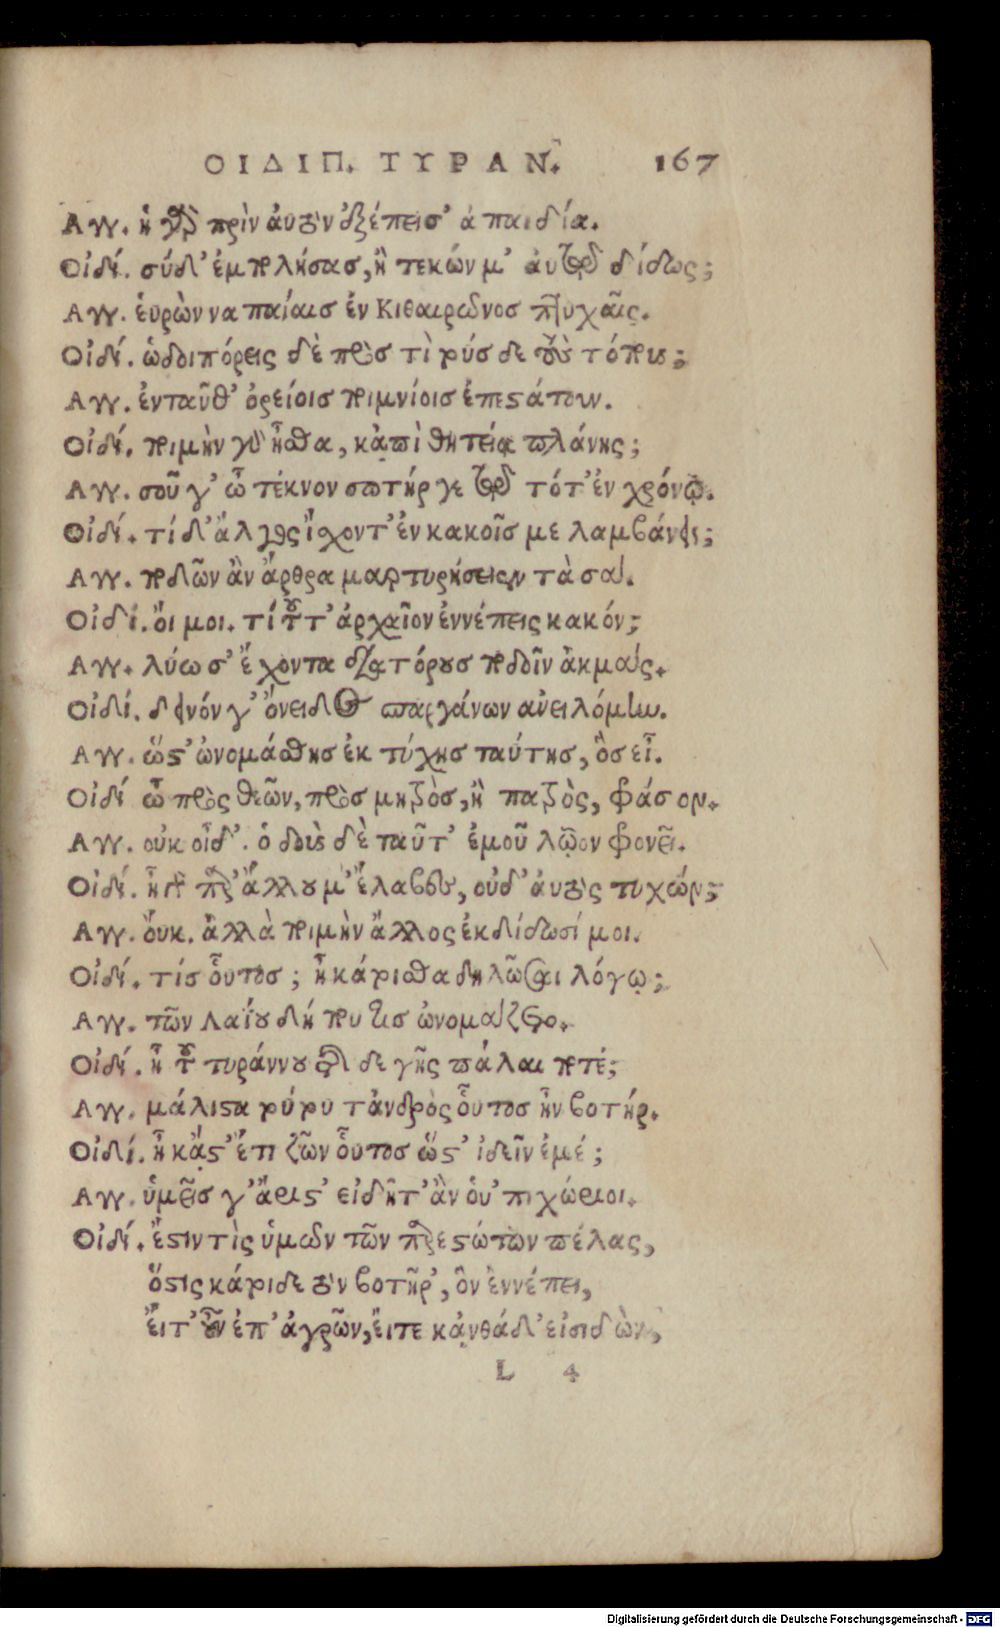 ΟΙΔΙΠ. ΤΥΡΑΝ. 167
Αγγ. ἡ γὰρ πρὶν αὐτὸν ἐξέπεισ' ἀπαιδία.
Οἰδί. σύ δ' ἐμπολήσας, ἢ τεκών μ' αὐτῷ δίδως;
Αγγ. εὑρὼν ναπαίαις ἐν Κιθαιρῶνος πτυχαῖς.
Οἰδί. ὡδοιπόρεις δὲ πρὸς τί τούσδε τοὺς τόπους;
Αγγ. ἐνταῦθ' ὀρείοις ποιμνίοις ἐπεστάτουν.
Οἰδί. ποιμὴν γὰρ ἦσθα, κἀπὶ θητείᾳ πλάνης;
Αγγ. σοῦ γ' ὦ τέκνον σωτήρ γε τῷ τότ' ἐν χρόνῳ.
Οἰδί. τί δ' ἄλγος ἴσχοντ' ἐν κακοῖς με λαμβάνεις;
Αγγ. ποδῶν ἂν ἄρθρα μαρτυρήσειεν τὰ σά.
Οἰδί. οἴ μοι. τί τοῦτ' ἀρχαῖον ἐννέπεις κακόν;
Αγγ. λύω σ' ἔχοντα διατόρους ποδοῖν ἀκμάς.
Οἰδί. δεινόν γ' ὄνειδος σπαργάνων ἀνειλόμην.
Αγγ. ὥστ' ὠνομάσθης ἐκ τύχης ταύτης, ὃς εἶ.
Οἰδί ὦ πρὸς θεῶν, πρὸς μητρὸς, ἢ πατρὸς, φράσον.
Αγγ. οὐκ οἶδ'. ὁ δοὺς δὲ ταῦτ' ἐμοῦ λῷον φρονεῖ.
Οἰδί. ἦ γὰρ παρ' ἄλλου μ' ἔλαβες, οὐδ' αὐτὸς τυχών;
Αγγ. οὔκ. ἀλλὰ ποιμὴν ἄλλος ἐκδίδωσί μοι.
Οἰδί. τίς οὗτος; ἦ κάτοισθα δηλῶσαι λόγῳ;
Αγγ. τῶν Λαΐου δή που τις ὠνομάζετο.
Οἰδί. ἦ τοῦ τυράννου τῆσδε γῆς πάλαι ποτέ;
Αγγ. μάλιστα τούτου τἀνδρὸς οὗτος ἦν βοτήρ.
Οἰδί. ἦ κᾄστ' ἔτι ζῶν οὗτος ὥστ' ἰδεῖν ἐμέ;
Αγγ. ὑμεῖς γ' ἄριστ' εἰδῆτ' ἂν οὑ' πιχώριοι.
Οἰδί. ἔστιν τὶς ὑμῶν τῶν παρεστώτων πέλας,
ὅστις κάτοιδε τὸν βοτῆρ', ὃν ἐννέπει,
εἴτ' οὖν ἐπ' ἀγρῶν, εἴτε κἀνθάδ' εἰσιδὼν,
L 4
Digitalisierung gefördert durch die Deutsche Forschungsgemeinschaft - DFG